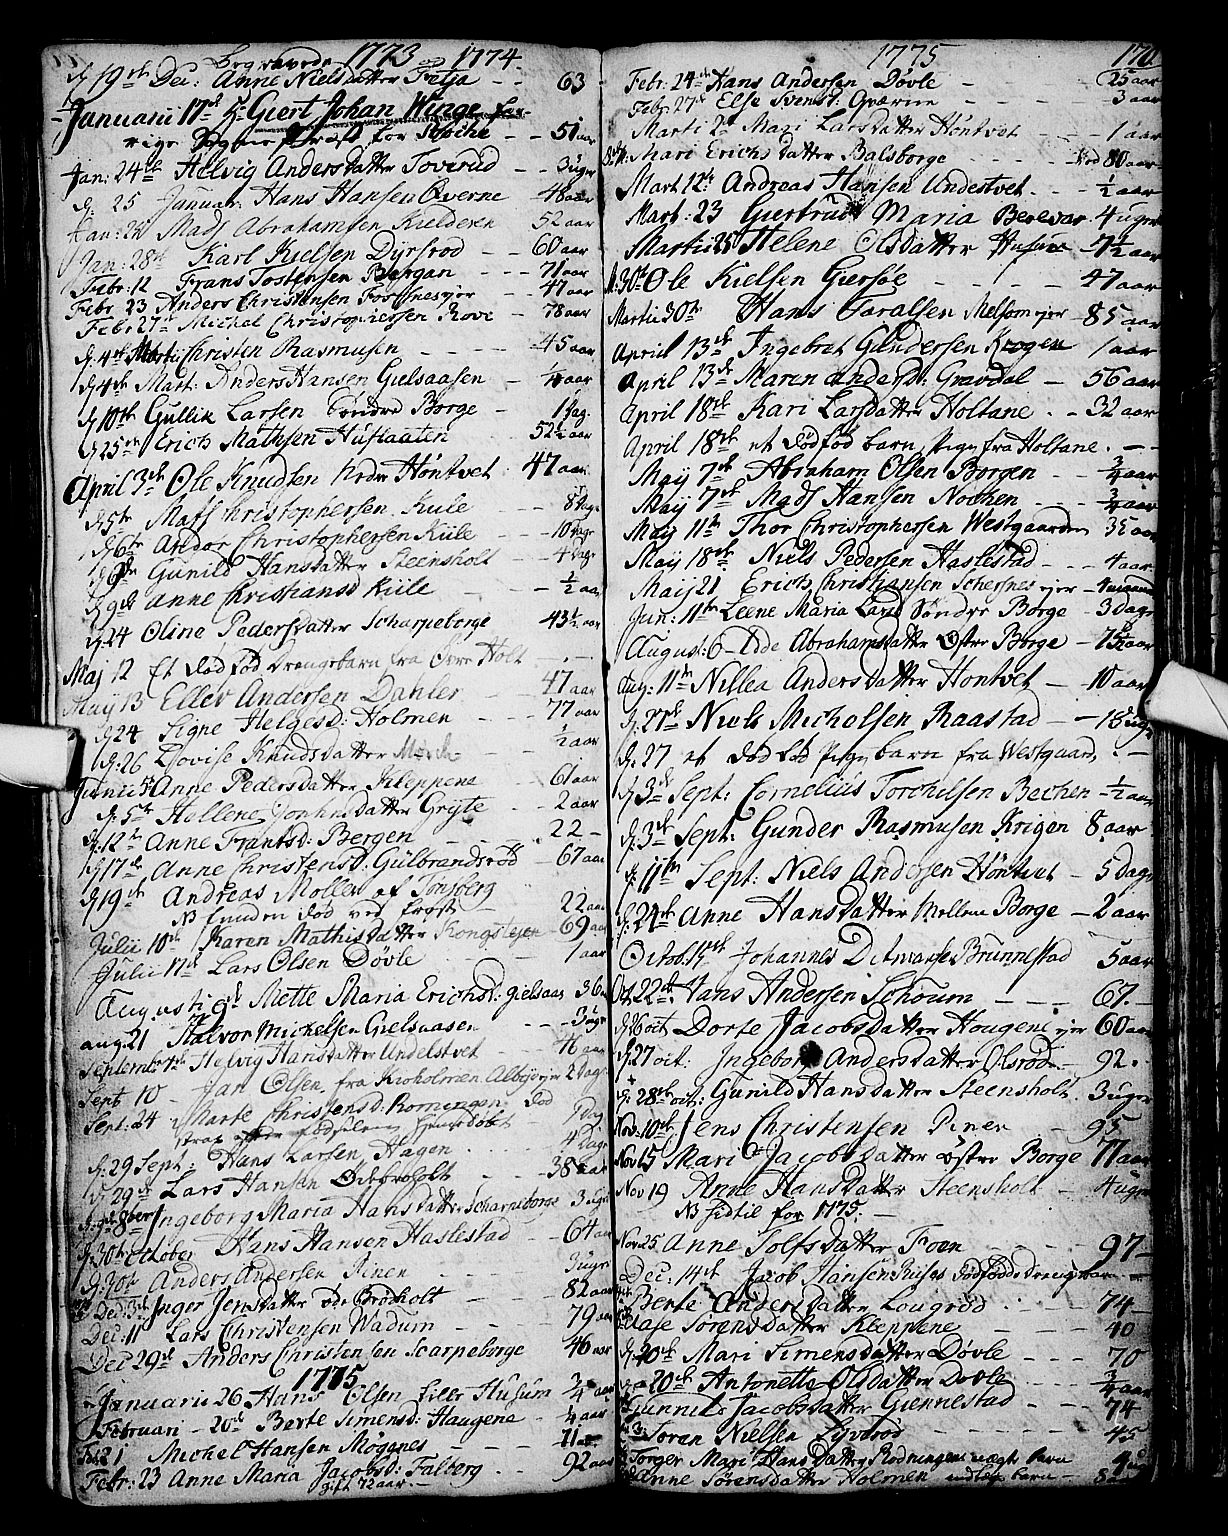 Begravede 1773 og 1774
D. 19de Dec: Anne Nielsdatter Fresja - - 63
Januarii 17de Hr Giert Johan Winge for-
rige Sogne Præst for Stokke - - 51 aar
Jan: 24de Helvig Andersdatter Toverud - - 3 uger
d. 25 Januar: Hans Hansen Qverne - 48 aar
Jan: 24 Mads Abrahamsen Kielderen 52 aar
Jan: 28de Karl Kielsen Dyrsrod - - - 60 aar
Febr: 12 Frans Tostensen Bergan - - - 71 aar
Febr. 23 Anders Christensen - - 47 aar
Febr 27de Michel Christophersen Rove - - 78 aar
d. 4de Martii Christen Rasmusen - - - - 45 aar
d 4de Mart: Anders Hansen Gielsaasen - 1/4 aar
d 10de Gullik Larsen Søndre Borge - 1 dag.
d 25de Erich Mathsen Huflaaten - 52 1/2 aar
April 3de Ole Knudsen Nedre Høntvet : 47 aar
d 5te Mats Christophersen Kiile - - 8 dage
d 6te Andor Christophersen Kiile - - 10 dage
d Gunild Hansdatter Steensholt - - 4 dage
d 9de Anne Christiansd Kiile - - 1/2 aar
d. 24 Oline Pedersdatter Scharpeborge - 43 1/2 aar
Maj 12 Et dødfød drengebarn fra Øvre Holt - . -
May 13 Ellev Andersen Dahler - - - 47 aar
d 24 Signe Helgesd: Holmen - - - 77 aar
d: 26 Lovise Knudsdatter - - - 1/2 aar
Junii Anne Pedersdatter Kleppene - 61 aar
d. 5te Hellene datter Gryte - - 2 aar
d: 12te Anne Frantsd: Bergen - - 22 -
d 17de Anne Christensd: Gulbrandsrød - 67 aar
d 19de Andreas Møller af Tønsberg
NB funden død ved frost - 22 aar
Julii 10de Karen Mathisdatter Kongstejen - 69 aar
Julii 17de Lars Olsen Døvle - - 1 aar
Augusti 9de Mette Maria Erichsd: Gielsaas 36
aug: 21 Halvor Michelsen Gielsaasen - - - 3 uger
September Helvig Hansdatter Undelstvet - - - 76 aar
Sept 10 - Jan Olsen fra Kroholmen 2 dage
Sept: 24 Marte Christensd: Romningen. død
strax efter fødselen hjemedøbt - 1 dag
d. 29 Sept: Hans Larsen Hagen . . . . 4 dage
d 29de Lars Hansen - - - 38 aar
8ber Ingeborg Maria Hansdatter Scharpeborge 3 uger
d. 30te October Hans Hansen Haslestad - - 64 aar
d. 30te Anders Andersen Pinen - - - 3 uger
Dec: 3de Inger Jensdatter Brøcholt - - 82 aar
Dec: 11 Lars Christensen Wadum - - - 79 aar
Dec 29de Anders Christensen Scarpeborge 46 aar
1775
Januarii 26 Hans Olsen Lille Husum 3/4 aar
Februari - 20de Berte Simensd: Haugene - 1/4 aar
Feb: 21 Michel Hansen Møggnes - - - 71 -
Febr: 23 Anne Maria Jacobsd: Falberg . - - 92 aar
gift 72 aar. -
1775
Febr: 24de Hans Andersen Døvle - 25 aar
Febr 27de Else Svensd: Qværne - - - - 3 aar
Marti 2de Mari Larsdatter Høntvet - - - 1 aar
Mari Erichsdatter Balsborge - - - 80 aar
Mart. 12te Andreas Hansen Undestvet. - - - 1/2 aar
Mart: 23 Giertrud Maria - 4 uger
Martii 25 Helene Olsdatter - 7 1/2 aar
M: 30te Ole Kielsen Giersøe - - - 47 aar
Martii 30te Hans Taralsen Melsom ejer - 85 aar
April 13de Ingebret Gundersen Krogen 1 aar
April 13de Maren anders: Gravdal - 56 aar
April 18de Kari Larsdatter Holtane . - 32 aar
April 18de et dødfød barn, Pige fra Holtane . - -
May 7de Abraham Olsen Borgen - - 3/4 aar
May 7de Mads Hansen Nochen - - - 3/4 aar
May 11te Thor Christophersen Westgaarden 35 aar
May 18de Niels Pedersen Haslestad - - - 4 aar
Maij 21 Erich Christiansen ejer -
Jun: 11te Leene Maria Søndre Borge - 3 dage
August: 6 - Edde Abrahamsdatter Øster Borge - 75 1/2 aar
Aug: 11te Nillea Andersdatter Hontvet - - 10 aar
d: 27de Niels Micholsen Raastad - - 18 uger
d: 27 et dødfød Pigebarn fra Westgaard . -
d 3de Sept: Cornelius Torchilsen Bechen - 1/2 aar
d. 3de Sept: Gunder Rasmusen Krigen 8 aar
d: 11te Sept: Niels Andersen Høntvet - 5 dage
d: 24de Anne Hansdatter Mellem Borge - 2 aar
Octob. 15de Johannes Brunnelstad 5 aar
Oct: 22de Hans Andersen Schoum - - - 67. -
d 26 oct Dorte Jacobsdatter Hougene ejer 60 aar
d. 27 oct. Ingeborg Andersdatter Olsrød - - 92.
d: 28de oct: Gunild Hansdatter Steensholt . 3 uger
Nov: 10de Jens Christensen Pinen - 95. -
Nov 15 Mari Jacobsdatter øster Borge 77 aar
Nov 19 Anne Hansdatter Steensholt - 4 uger
NB sidtil for 1775. -
Nov: 25 Anne Tolfsdatter Foen - - - 97 -
Dec: 14de Jacob Hansen dødfødde drengebarn -
Berte Andersdatter Lougrod . - - - 74 -
Aase Sørensdatter Kleppene - - - 40
d: 20de Mari Simensdatter Døvle - - - 70
20de Antonette Olsdatter Døvle - - - 3/4 aar
Gunnild Jacobsdatter Giennestad - - 74
Søren Nielsen Lyverød - - - 45
Torger Hansdatter Rodningen uægte barn
Anne Sørensdatter Holmen barn -